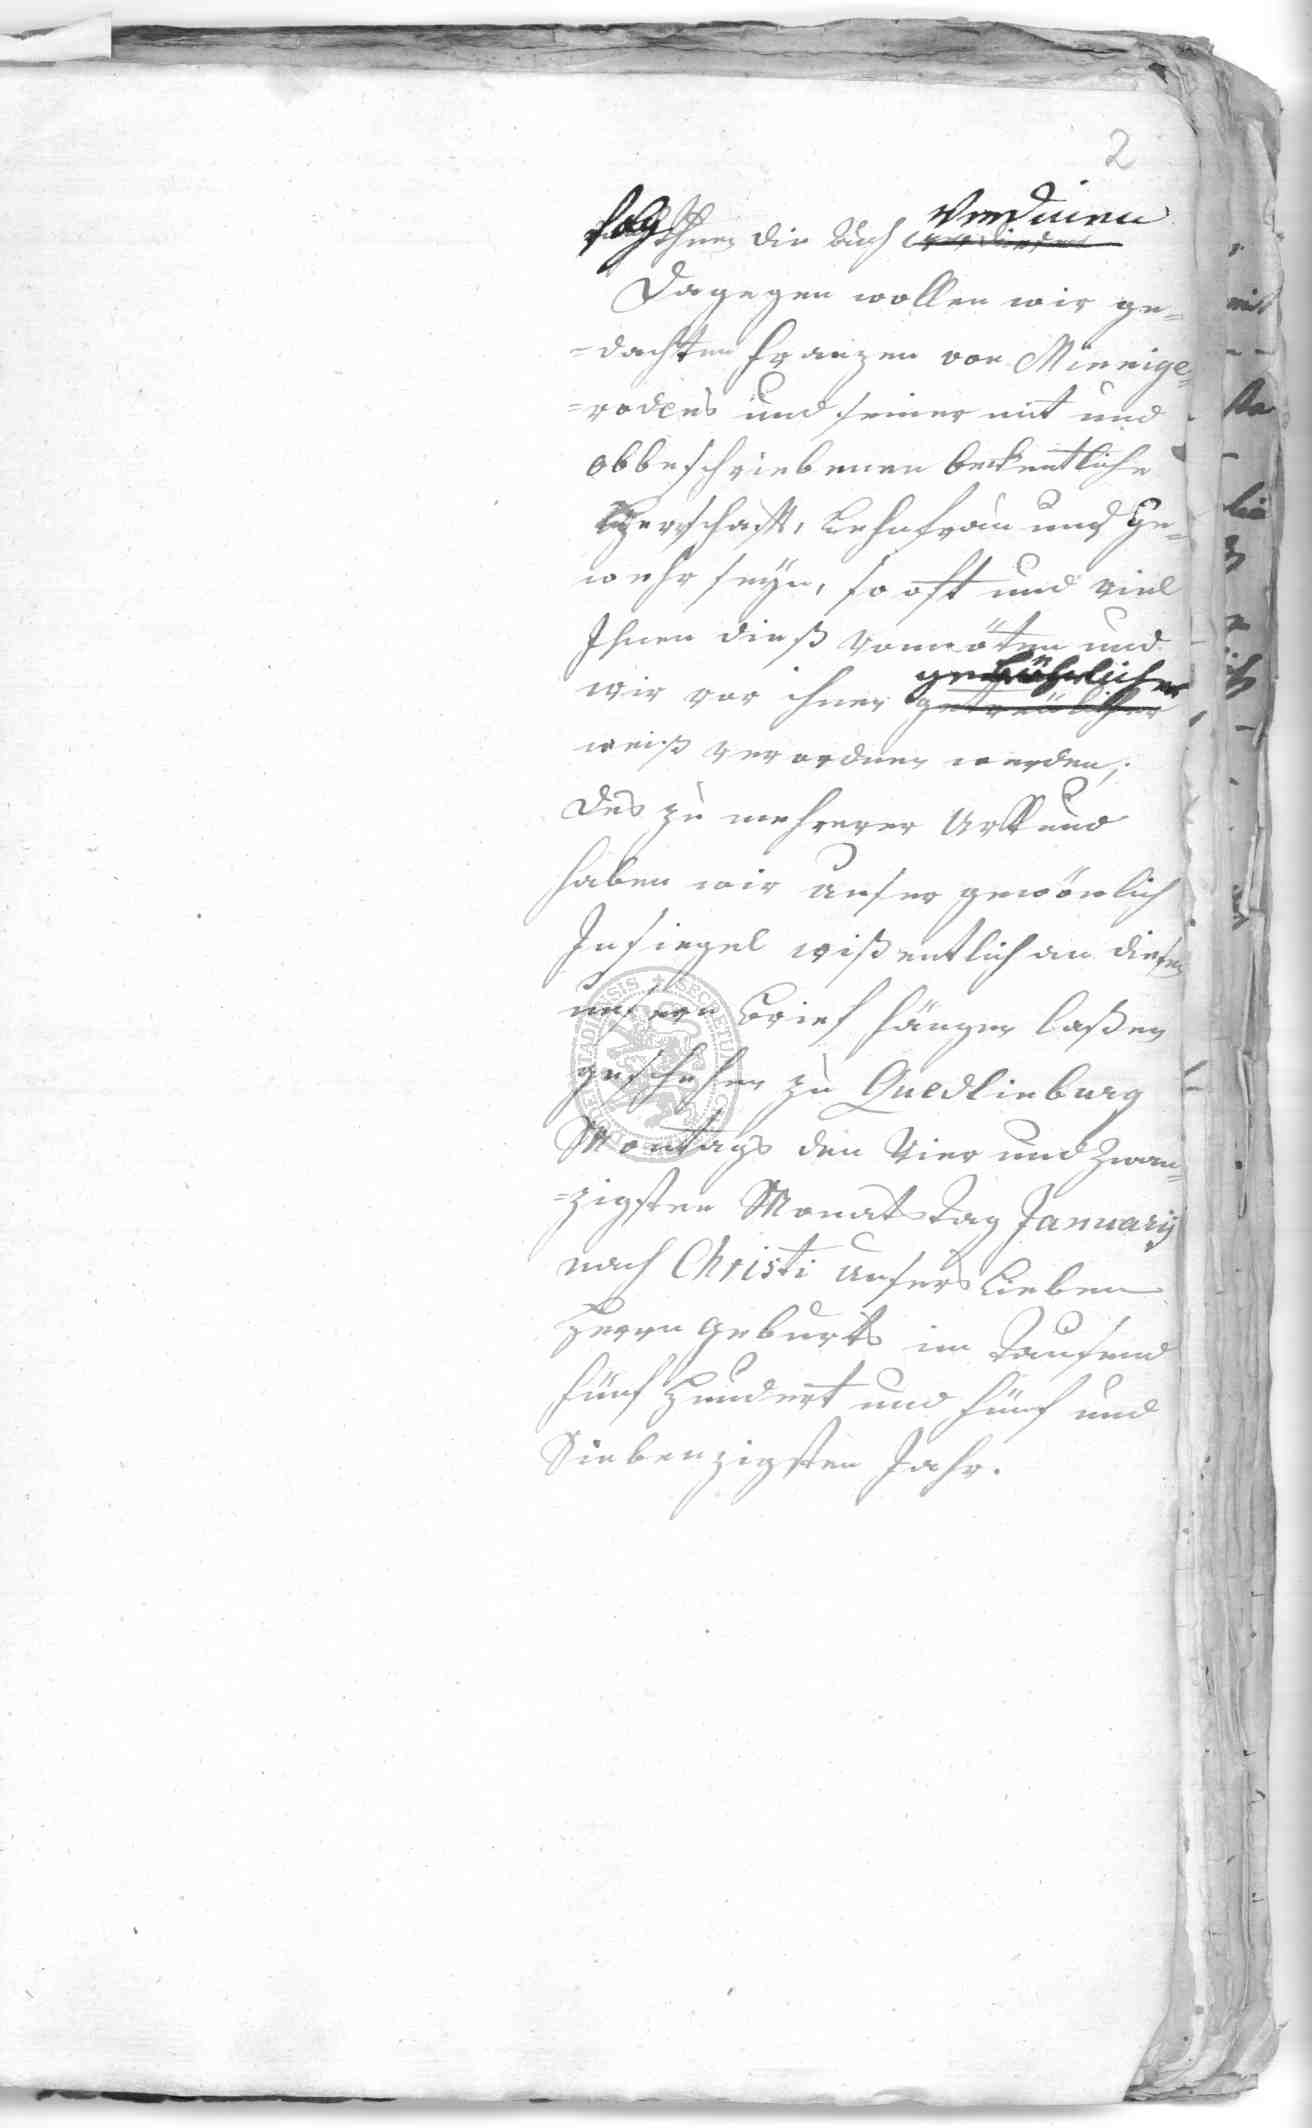 2
verdienen
Ihnen die auch
Dagegen wollen wir ge=
=dachten Franzen von Minnige=
=rodens und seiner mit und
obbeschriebenen bekentliche
Herrschafft, Lehnfraù und Ge=
wehr seyn, so oft und viel
Ihnen dieß vonnöten und
gebührlicher
wir von ihnen getreülicher
weiß verordnen werden;
Des zù mehrerer Urkund
haben wir unser gewönlich
Insiegel wißentlich an diesen
unsern Brief hängen laßen
geschehen zù Quedlinburg
Montags den Vier und zwan=
=zigsten Monats tag Januarij
nach Christi unsers lieben
Herrn Geburts im Tausend
fünf hundert und fünf und
Siebenzigsten Jahr.
SECRETUM